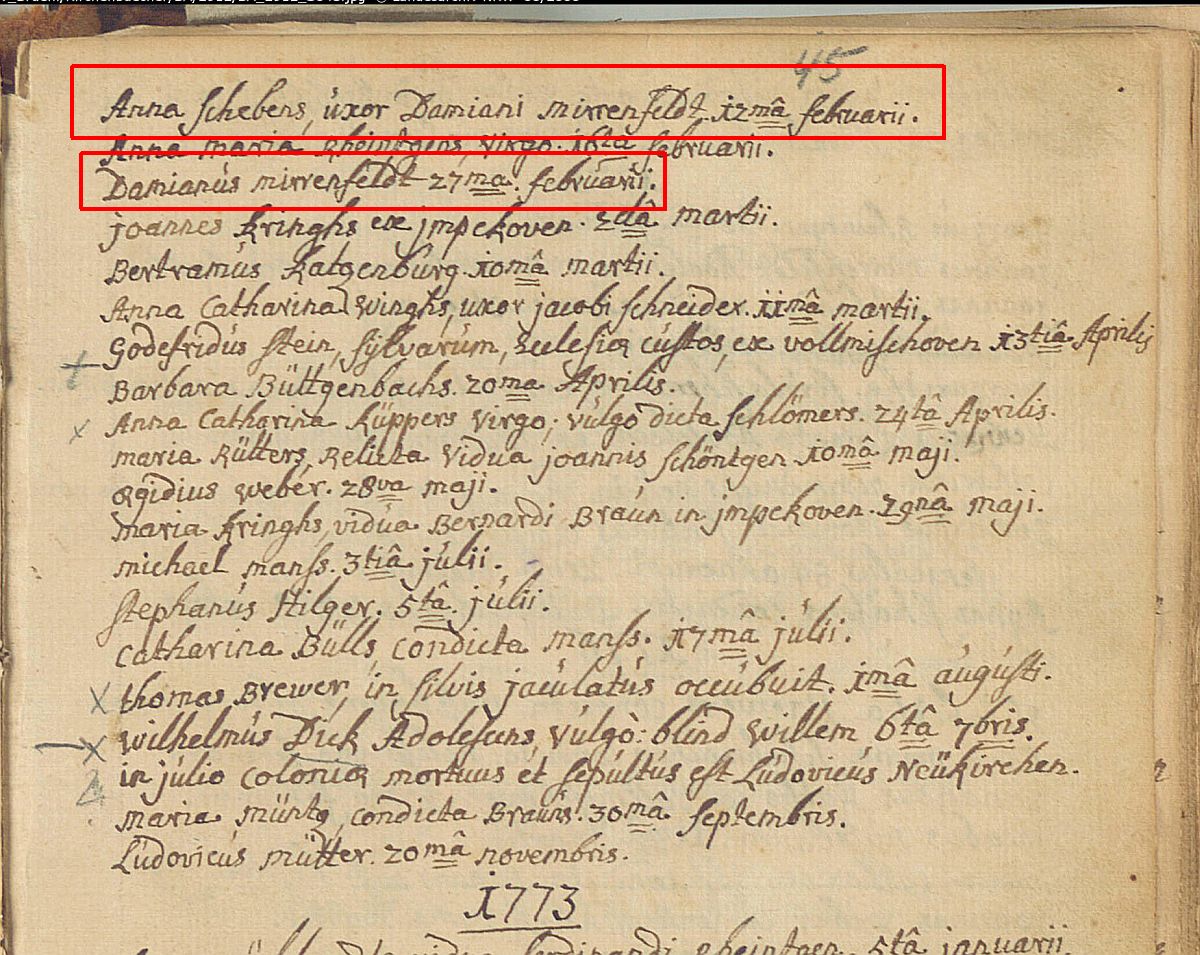 45
Anna Schebens, uxor Damiani mirrenfeldt. 12mâ februarii.
Anna maria Rheintgens, virgo. 16ta februarii.
Damianús mirrenfeldt 27ma. februarii.
joannes Kringhs ex jmpekoven. 2dâ martii.
Bertramús Katgenbúrg. 10mâ martii.
Anna Catharina Winghs, uxor jacobi Schneider. 11mâ martii.
Godefridús Stein, Sÿlvarúm, Ecclesiæ cústos, ex vollmischoven 13tiâ Aprilis
Barbara Büttgenbachs. 20ma Aprilis.
Anna Catharina Küppers virgo; vúlgò dicta Schlömers. 24tâ Aprilis.
maria Rütters, Relicta vidua joannis Schöntgen 10mâ maji.
ægidius weber. 28va maji.
maria Kringhs, vidúa Bernardi Braún in jmpekoven. 29nâ maji.
michael manss. 3tiâ júlii.
Stephanús Hilger. 5tâ. júlii.
Catharina Bülls condicta manss. 17mâ júlii.
thomas Brewer, in silvis jaculatús occúbuit. 1mâ aúgústi.
wilhelmús Dick Adolescens, vúlgò: blind willem 6tâ 7bris.
in júlio coloniæ mortuus et sepúltús est Lúdovicús Neükirchen.
maria müntz, condicta Braúns. 30mâ septembris.
Lúdovicús mütter. 20mâ novembris.
1773
5tâ januarii.